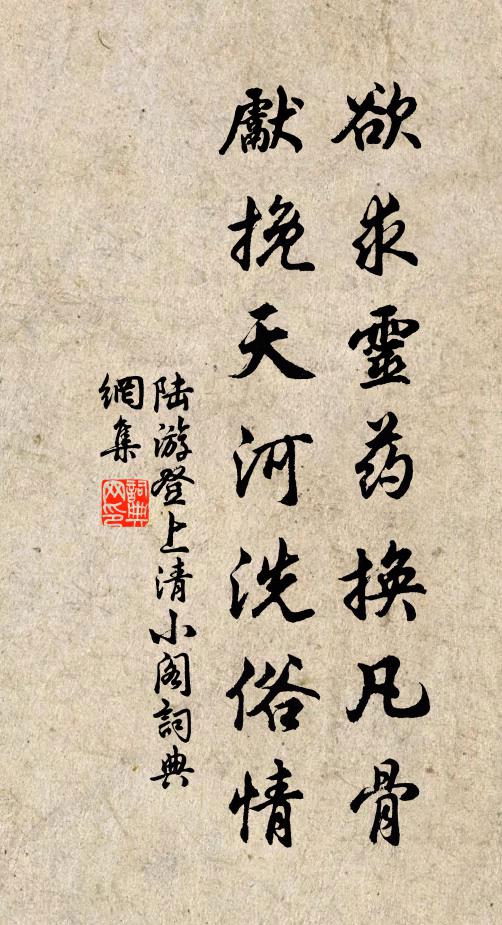 欲求靈药換凡骨
獻挽天河洗俗情
陆游登上清小阁詞典
網集
詞典
网印